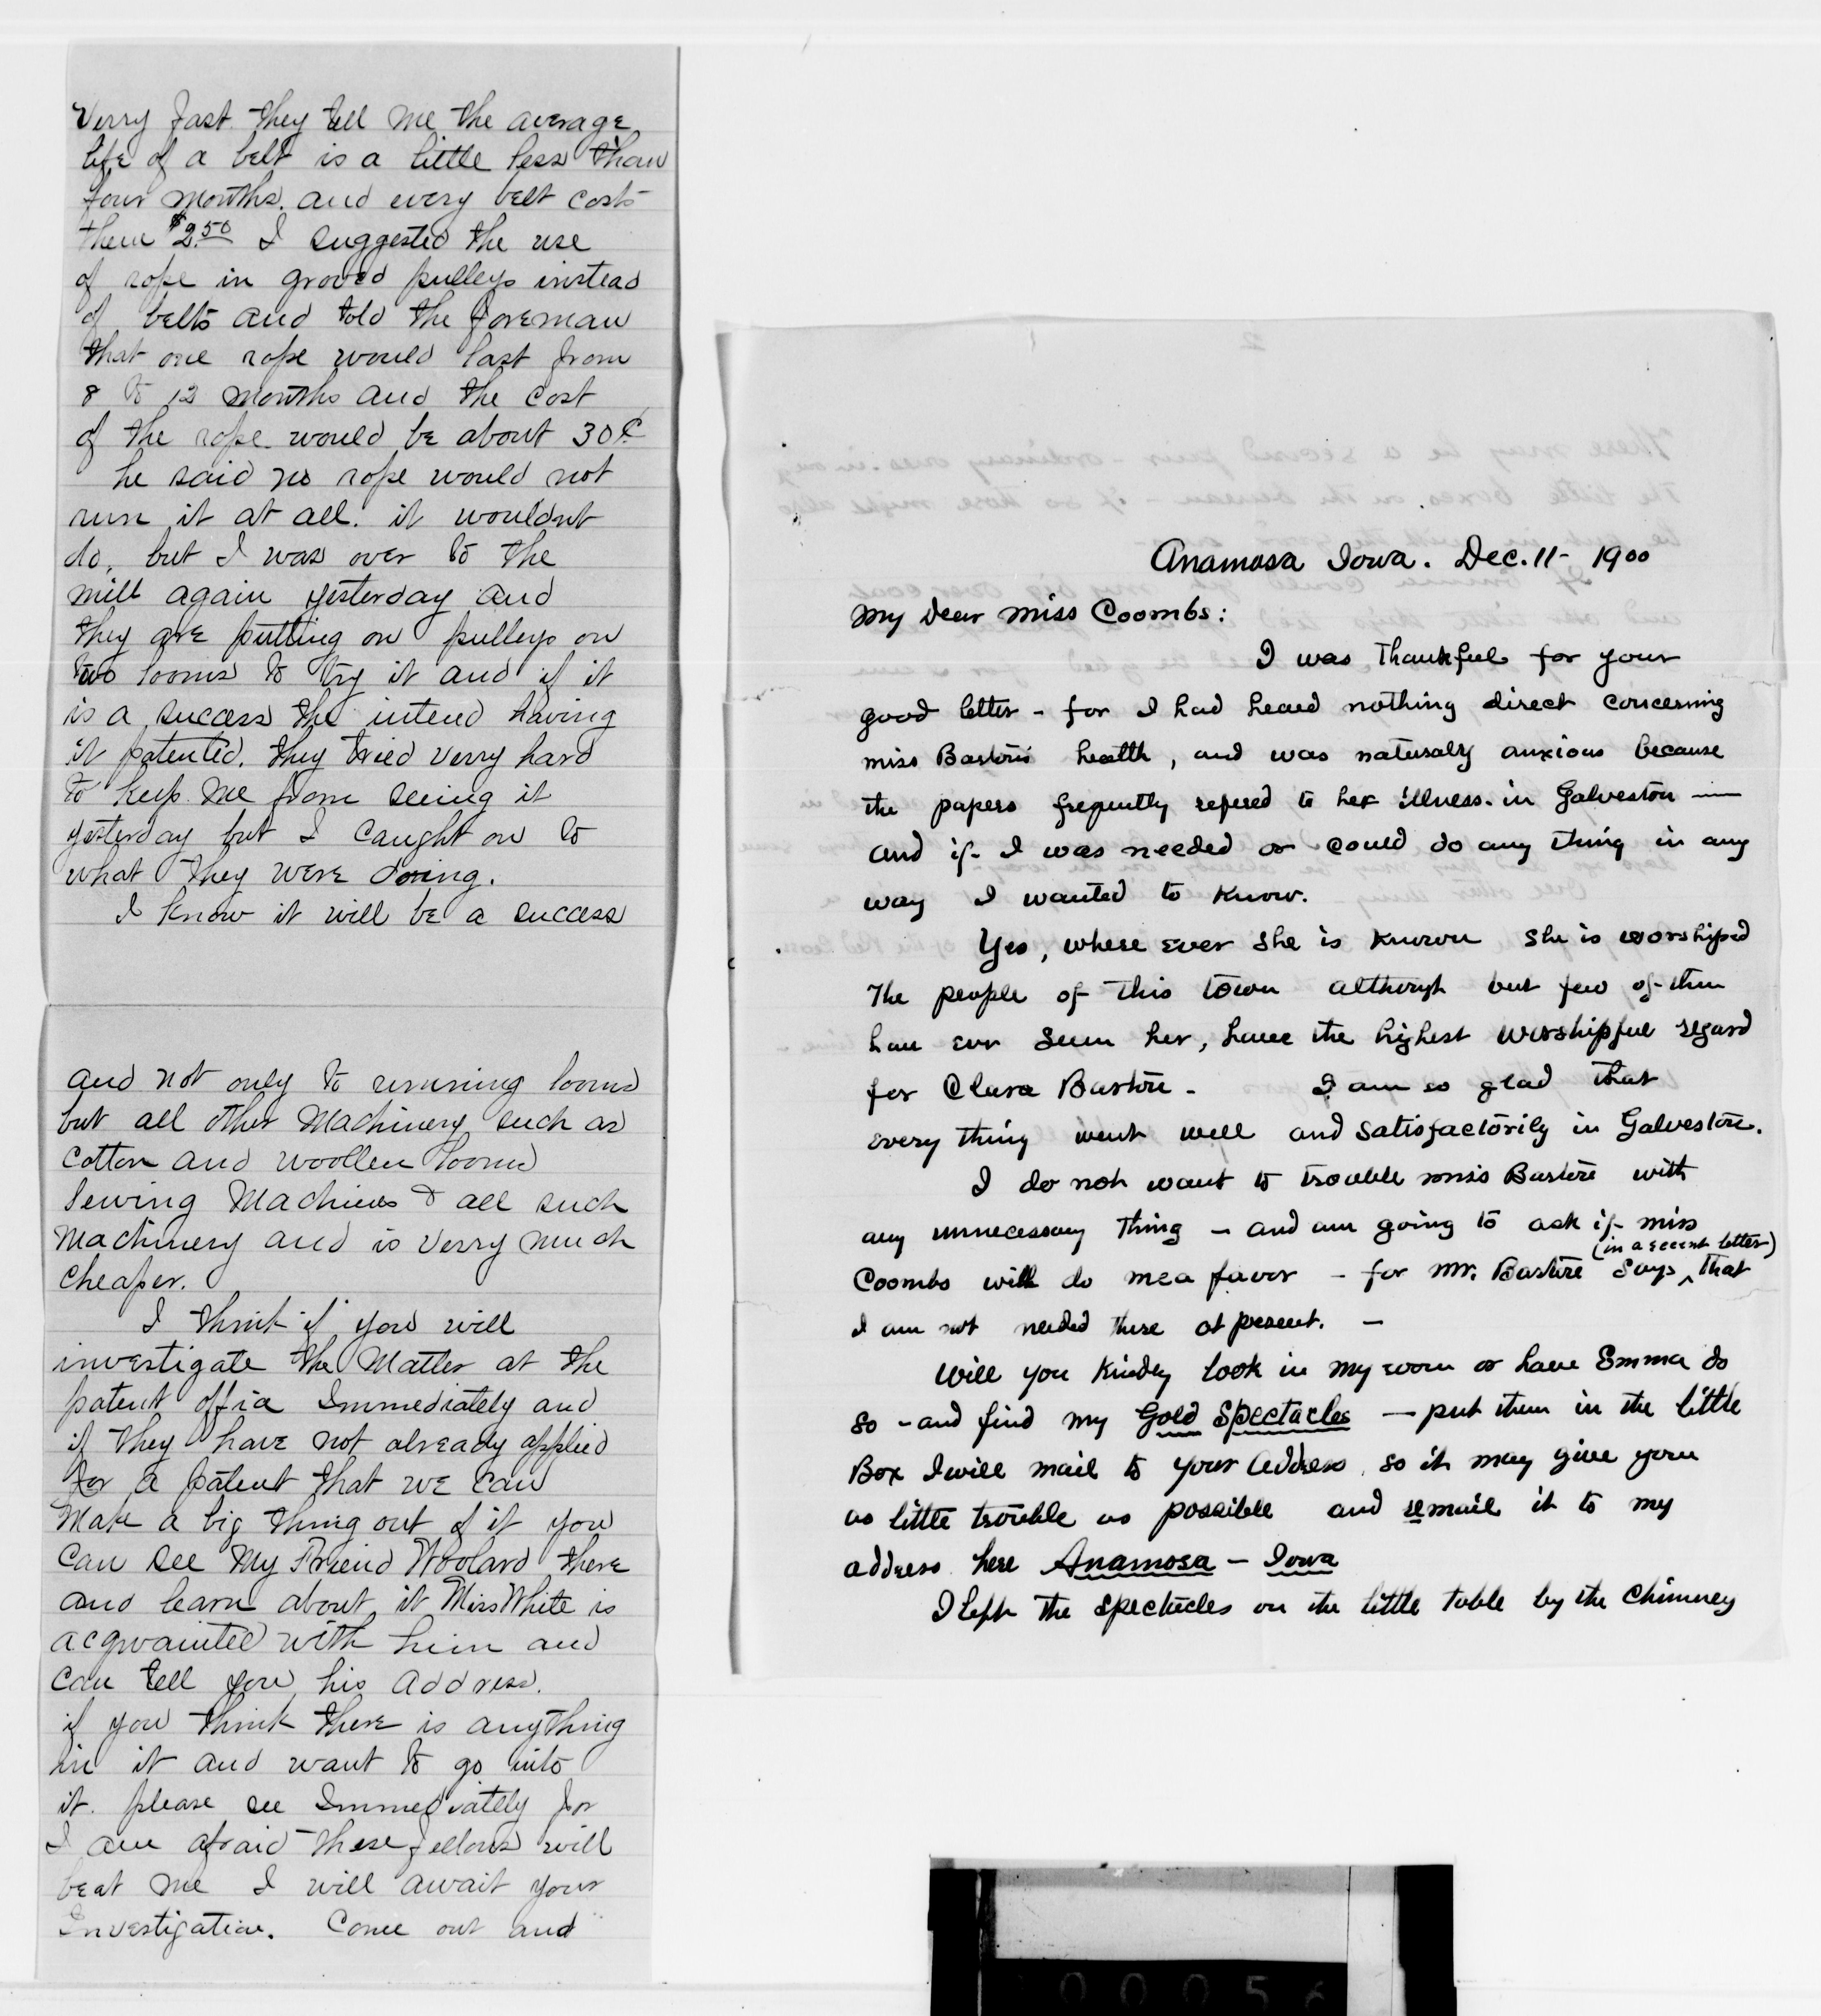 Verry fast they tell me the average
life of a belt is a little less than
four months. and every belt costs
them $2.50 I suggested the use
of rope in groved pulleys instead
of belts and told the foreman
that one rope would last from
8 to 12 months and the cost
of the rope would be about 30¢
he said no rope would not
run it at all. it wouldnt
do, but I was over to the
mill again yesterday and
they are putting on pulleys on
two looms to try it and if it
is a success the intend having
it patented. they tried verry hard
to keep me from seeing it
yesterday but I caught on to
what they were doing.
I know it will be a success
and not only to running looms
but all other Machinery such as
cotton and woollen looms
Sewing Machines & all such
Machinery and is verry much
cheaper.
I think if you will
investigate the Matter at the
patent office Immediately and
if they have not already applied
for a patent that we can
Make a big thing out of it you
can see My Friend Woolard there
and learn about it Miss White is
acqwainted with him and
can tell you his address.
if you think there is anything
in it and want to go into
it. please see Immediately for
I am afraid these fellows will
beat me I will await your
Investigation. Come out and
Anamosa Iowa. Dec. 11 - 1900
My Dear Miss Coombs:
I was thankful for your
good letter - for I had heard nothing direct concerning
miss Barton's health, and was naturaly anxious because
the papers frequently refered to her illness. in Galveston —
and if I was needed or could do any thing in any
way I wanted to know.
Yes, where ever she is known she is worshiped
The people of this town although but few of them
have ever seen her, have the highest worshipful regard
for Clara Barton - I am so glad that
every thing went well and satisfactorily in Galveston.
I do not want to trouble miss Barton with
any unnecessary thing - and am going to ask if miss
Coombs will do me a favor - for Mr. Barton says ^ (in a recent letter) that
I am not needed there at present. —
Will you kindly look in my room or have Emma do
so - and find my Gold Spectacles — put them in the little
Box I will mail to your address, so it may give you
as little trouble as possible and remail it to my
address here Anamosa - Iowa
I left the spectacles on the little table by the chimney